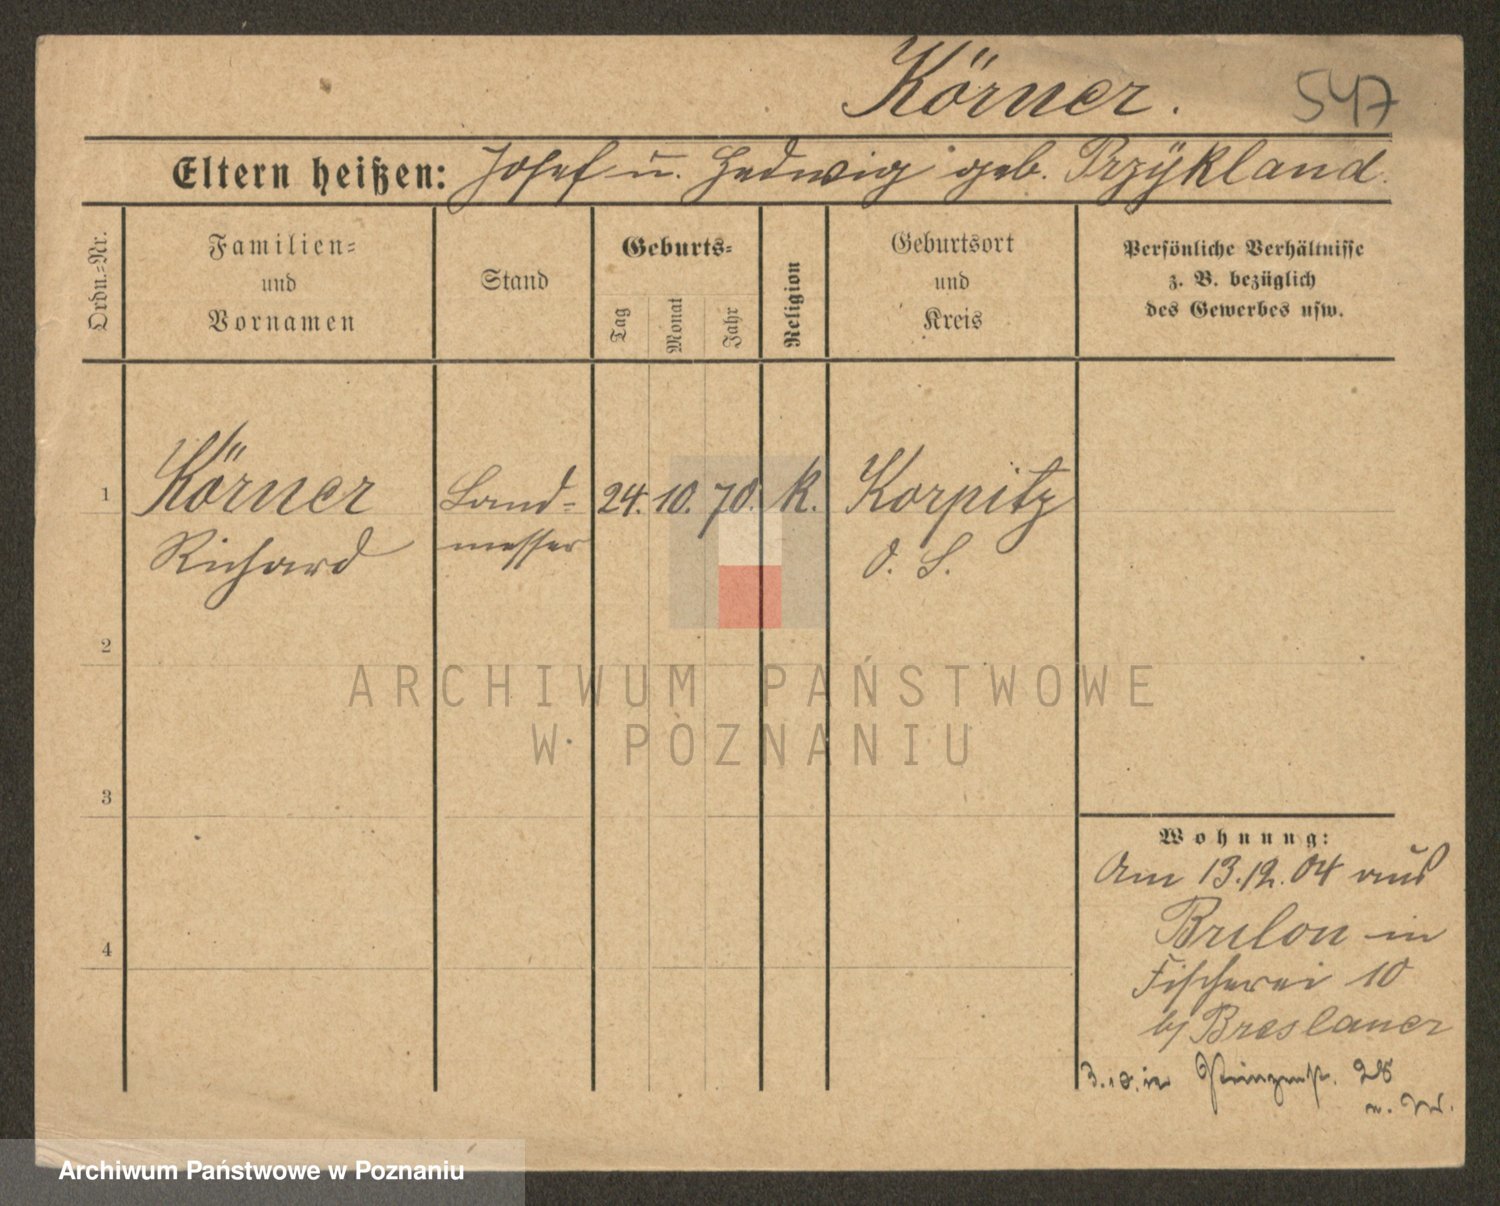 Körner.
547
Eltern heißen: Josef u. Hedwig geb. Przykland.
Ordn.=Nr.
Familien=
und
Vornamen
Stand
Geburts=
Tag
Monat
Jahr
Religion
Geburtsort
und
Kreis
Persönliche Verhältnisse
z. B. bezüglich
des Gewerbes usw.
1
Körner
Richard
Land=
messer
24. 10. 70. K.
Korpitz
O. S.
2
3
4
ARCHIWUM PAŃSTWOWE
W POZNANIU
Wohnung:
Am 13.12.04 aus
Brilon in
Fischerei 10
b/ Breslauer
Prinzenstr. 28
Archiwum Państwowe w Poznaniu